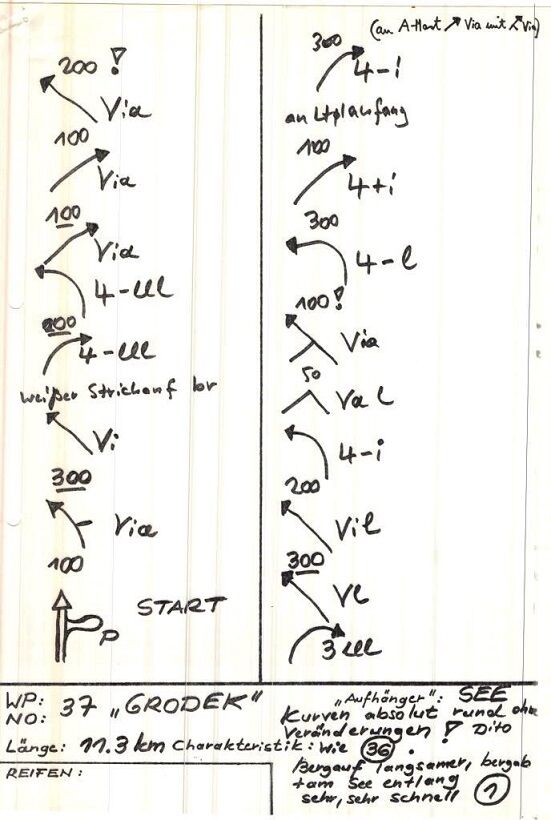 200 !
Via
100
Via
100
Via
4-lll
200
4-lll
weißer Strich auf
Vi
300
Via
100
START
P
(an A-Mast Via mit Via)
300
4-i
100
4+i
300
4-l
100!
Via
50
Val
4-i
200
Vil
300
Vl
3 lll
WP: 37 „GRODEK"
NO:
Länge: 11.3 km Charakteristik: wie 36.
REIFEN:
„Aufhänger": SEE
Kurven absolut rund ohne
Veränderungen ! Dito
Bergauf langsamer, bergab
+am See entlang
sehr, sehr schnell 1